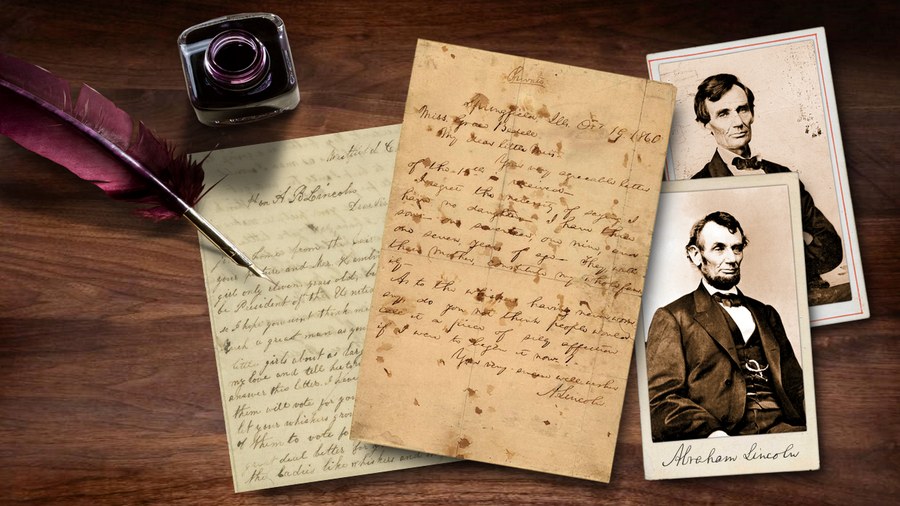 Hon A B Lincoln
Dear Sir
girl only eleven years old, b
be President of the United
so I hope you wont think me
such a great man as you
little girls about as lar
my love and tell her to
answer this letter. I have
them will vote for you
let your whiskers grow
of them to vote fo
deal better fo
the ladies like whiskers and
Private
Springfield, Ills. Oct 19, 1860
Miss. Grace Bedell
My dear little Miss.
Your very agreeable letter
of the 15th is received.
I regret the necessity of saying I
have no daughters. I have three
sons one seventeen, one nine, and
one seven, years of age. They, with
their mother, constitute my whole fam
ily.
As to the whiskers, having never worn
any, do you not think people would
call it a piece of silly affection
if I were to begin it now?
Your very sincere well-wisher
A. Lincoln
Abraham Lincoln